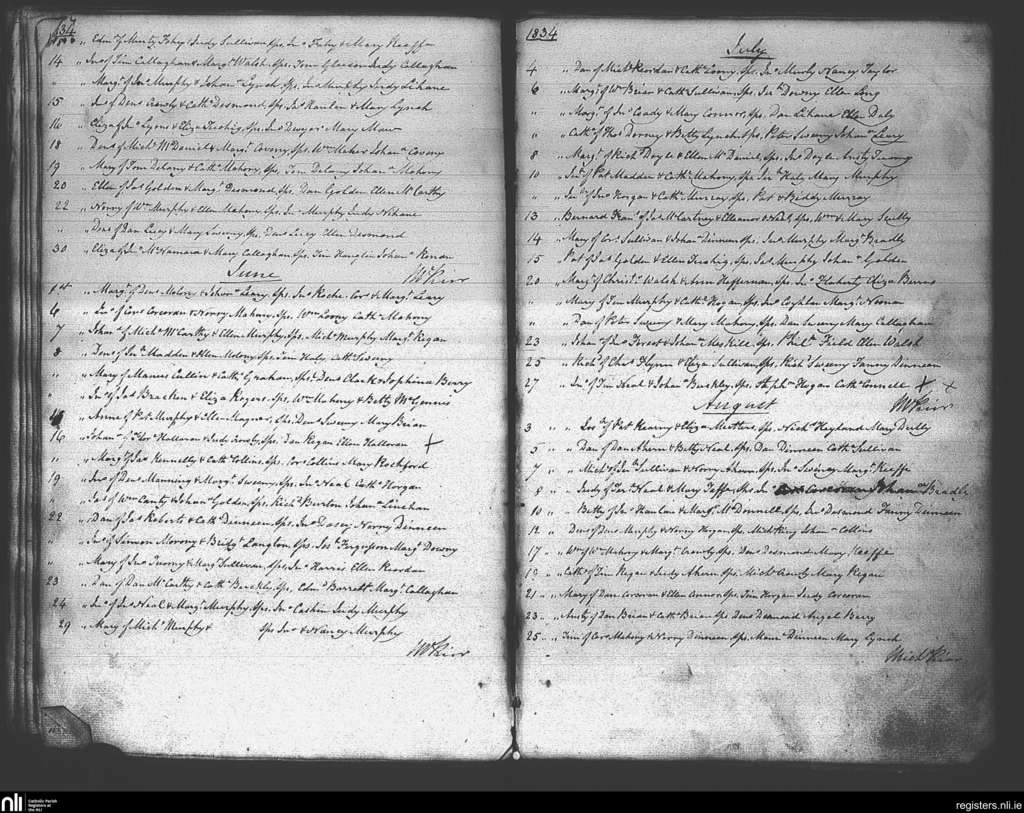 1834
" Edm. of Murty Fohy & Judy Sullivan Sps. Jno. Fohy & Mary Keeffe
14 " Jno. of Tim Callaghan & Margt. Walsh, Sps. Tom Gleeson Judy Callaghan
" Margt. of Jno. Murphy & Johan. Lynch Sps. Jno. Murphy Judy Lihane
15 " Jno. of Dens. Crowly & Cath. Desmond, Sps. Jno. Hanlon & Mary Lynch
16 " Eliza of Jno. Lyons & Eliza Sps. Jno. Dwyer Mary
18 " Dens. of Michl. McDaniel & Margt. Coveny, Sps. Wm. Meher Johan. Coveny
19 " Mary of Tom Delany & Cath. Mahony, Sps. Tom Delany Johan. Mahony
20 " Ellen of Jas. Golden & Margt. Desmond, Sps. Dan Golden Ellen McCarthy
22 " Norry of Wm. Murphy & Ellen Mahony, Sps. Jno. Murphy Judy Nihane
" Dens. of Dan Lucy & Mary Sweeny, Sps. Dens. Lucy Ellen Desmond
30 " Eliza of Jno. McNamara & Mary Callaghan, Sps. Tim Hanglin Johan. Ronan
June
1st " Margt. of Dens. & Johan. Leary, Sps. Jno. Roche. Cors. & Margt. Leary
6 " Jno. of Cors. Corcoran & Norry Mahony, Sps. Wm. Looney Cath. Mahony
7 " Johan. of Michl. McCarthy & Ellen Murphy, Sps. Michl. Murphy Margt. Regan
8 " Dens. of Jno. Madden & Ellen Molony, Sps. Tim Haly Cath. Sweeny
" Mary of Manus Cullin & Cath. Graham, Sps. Dens. Clark & Sophina Berry
" Jno. of Jas. Bracken & Eliza Rogers, Sps. Wm. Mahony & Betty McGennis
" Anne of Pat Murphy & Ellen Magner, Sps. Dens. Sweeny Mary Brien
16 " Johan. of Thos. Halloran & Jude Crowly, Sps. Dan Regan Ellen Halloran
" Margt. of Jas. Kennelly & Cath. Collins, Sps. Cors. Collins Mary Rochford
19 " Jno. of Dens. Manning & Margt. Sweeny, Sps. Jno. Neal Cath. Horgan
" Jas. of Wm. Canty & Johan. Golden, Sps. Richd. Barton Johan. Linehan
22 " Dan of Jas. Roberts & Cath. Dinneen, Sps. Jno. Casey Norry Dinneen
" Jno. of Simon Morony & Bridgt. Langton, Sps. Jas. Fergusson Margt. Downy
" Mary of Jno. Twomy & Margt. Sullivan, Sps. Jno. Harris Ellen Reordan
23 " Dan of Dan McCarthy & Cath. Buckly, Sps. Edm. Barrett Margt. Callaghan
24 " Jno. of Jno. Neal & Margt. Murphy, Sps. Jno. Cashin Judy Murphy
29 " Mary of Michl. Murphy & Sps. Jno. & Nancy Murphy
1834
July
4 " Dan of Michl. Reordan & Cath. Looney, Sps. Jno. Murly Nancy Taylor
6 " Margt. of Wm. Brien & Cath. Sullivan, Sps. Jas. Downy Ellen Long
" Margt. of Jno. Coady & Mary Connor, Sps. Dan Lihane Ellen Daly
" Cath. of Thos. Dorney & Betty Lynch, Sps. Peter Sweeny Johan. Leary
8 " Margt. of Richd. Doyle & Ellen McDaniel, Sps. Jno. Doyle Ansty Twomy
10 " Jno. of Pat Madden & Cath. Mahony, Sps. Jno. Haly Mary Murphy
" Jno. of Jno. Horgan & Cath. Murray, Sps. Pat & Biddy Murray
13 " Bernard Frans. of Jas. McCartney & Elleanor O Neil, Sps. Wm. & Mary Scully
14 " Mary of Cors. Sullivan & Johan. Dinneen, Sps. Jno. Murphy Margt. Bradly
15 " Pat of Jas. Golden & Ellen Sps. Jas. Murphy Johan. Golden
20 " Margt. of Christr. Walsh & Ann Heffernan, Sps. Jno. Flaherty Eliza Burns
" Mary of Tim Murphy & Cath. Hogan, Sps. Jno. Coghlan Margt. Noonan
" Dan of Peter Sweeny & Mary Mahony, Sps. Dan Sweeny Mary Callaghan
23 " Johan. of Jno. Forest & Johan. Meskill, Sps. Phil. Field Ellen Walsh
25 " Richd. of Chas. Flynn & Eliza Sullivan, Sps. Richd. Sweeny Fanny Dinneen
27 " Jno. of Tim Neal & Johan. Buckly, Sps. Stephn. Hogan Cath. Connell
August
3 " Jos. of Pat Kearny & Eliza Sps. Nichs. Heyland Mary Dully
5 " Dan of Dan Ahern & Betty Neal, Sps. Dan Dinneen Cath. Sullivan
7 " Michl. of Jno. Sullivan & Norry Ahern, Sps. Jno. Sweeny Margt. Keeffe
8 " Judy of Ter. Neal & Mary Taffe, Sps. Jno. Corcoran Johan. Bradly
10 " Betty of Jno. Hanlon & Margt. McDonnell, Sps. Jno. Desmond Fanny Dinneen
12 " Dens. of Dens. Murphy & Nancy Hogan, Sps. Michl. King Johan. Collins
17 " Wm. of Wm. Mahony & Margt. Crowly, Sps. Dens. Desmond Mary Keeffe
19 " Cath. of Tim Regan & Judy Ahern, Sps. Michl. Crowly Mary Regan
21 " Mary of Dan Corcoran & Ellen Connor, Sps. Tim Horgan Judy Corcoran
23 " Ansty of Ian Brien & Cath. Brien Sps. Dens. Desmond Angel Berry
25 " Tim of Cors. Mahony & Norry Dinneen, Sps. Dinneen Mary Lynch
nli
Catholic Parish
Registers at
the NLI
registers.nli.ie